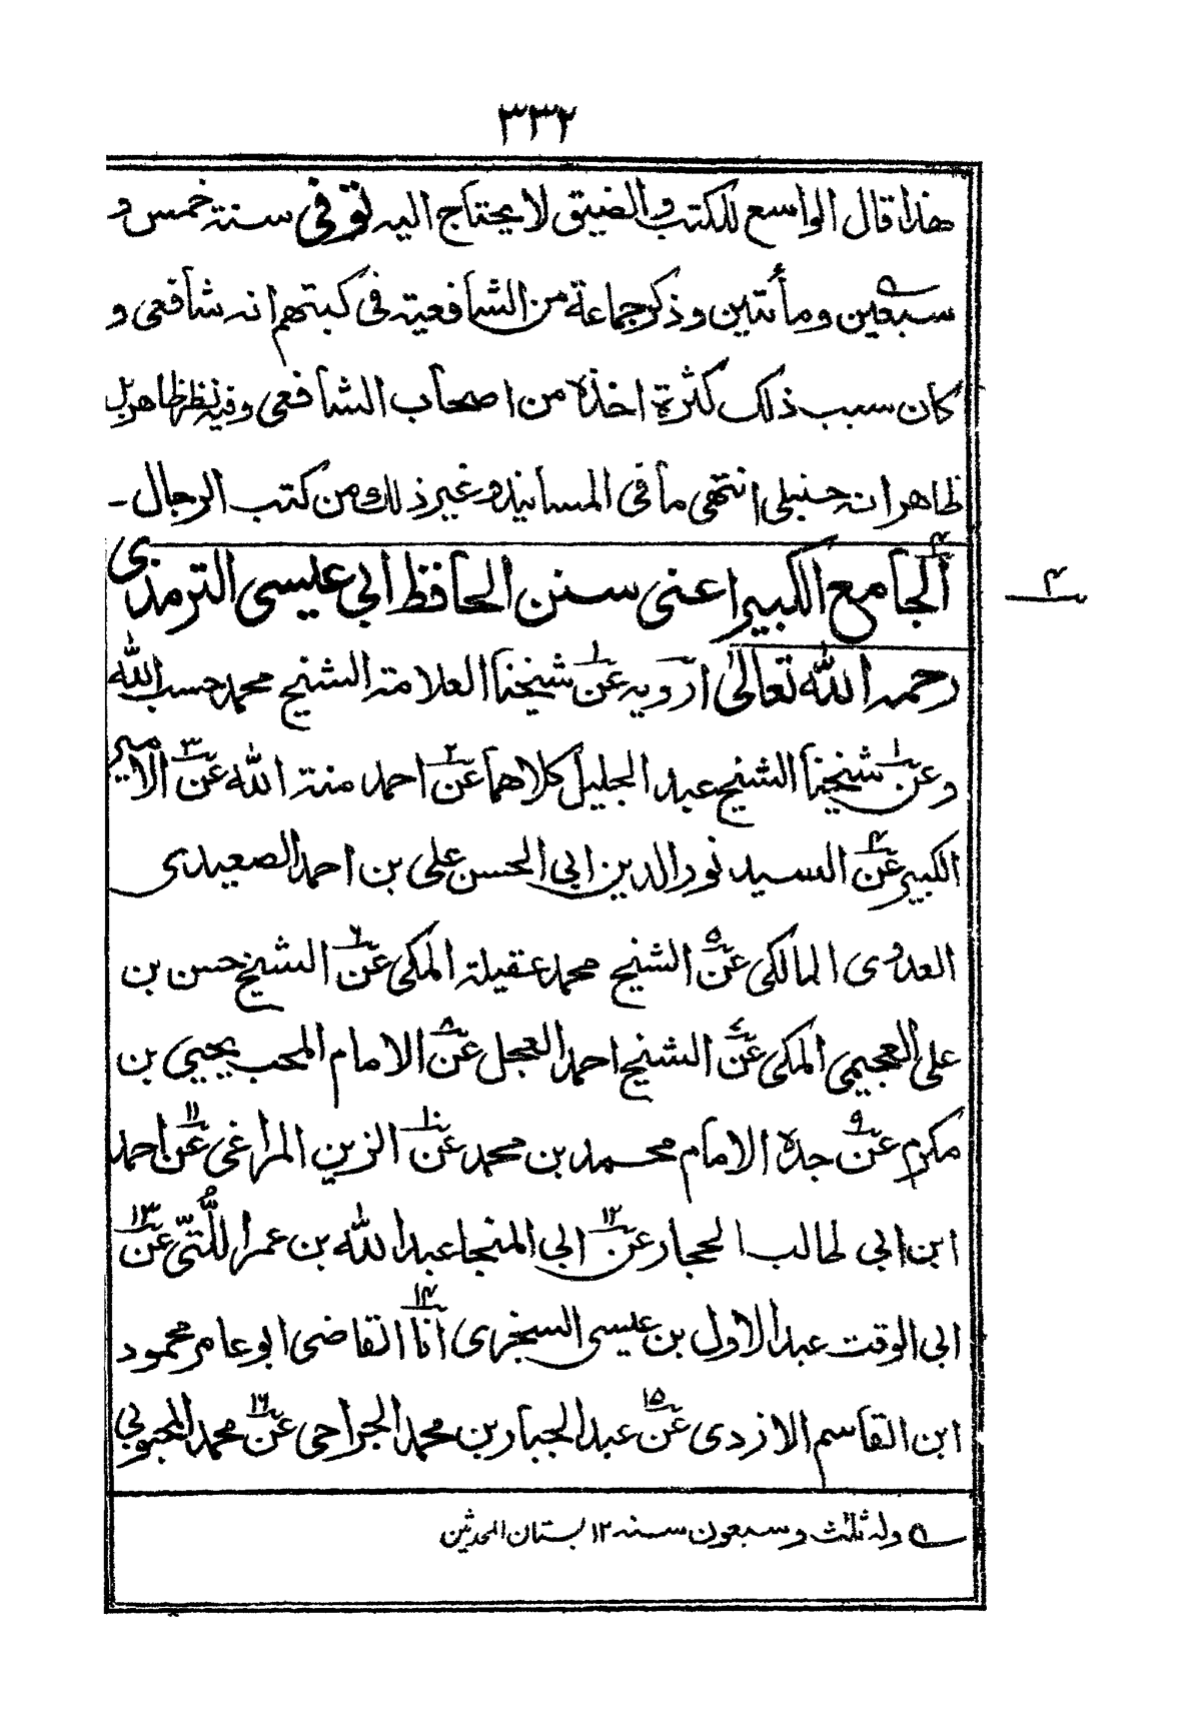 ٣٣٢
هذا قال الواسع للكتب والضيق لا يحتاج اليه توفى سنة خمس و
سبعين ومأتين وذكر جماعة من الشافعية فى كتبهم انه شافعى و
كان سبب ذلك كثرة اخذه من اصحاب الشافعى وفيه نظر ظاهر بل
ظاهر انه حنبلى انتهى ما فى المسانيد وغير ذلك من كتب الرجال ـ
٤
الجامع الكبير اعنى سنن الحافظ ابى عيسى الترمذى
٤
رحمه الله تعالى ارويه عن١ شيخنا العلامة الشيخ محمد حسب الله
وعن١ شيخنا الشيخ عبد الجليل كلاهما عن٢ احمد منة الله عن٣ الامير
الكبير عن٤ السيد نور الدين ابى الحسن على بن احمد الصعيدى
العدوى المالكى عن٥ الشيخ محمد عقيلة المكى عن٦ الشيخ حسن بن
على العجيمى المكى عن٧ الشيخ احمد العجل عن٨ الامام المحب يحيى بن
مكرم عن٩ جده الامام محمد بن محمد عن١٠ الزين المراغى عن١١ احمد
ابن ابى طالب الحجار عن١٢ ابى المنجا عبد الله بن عمر اللُّتِّى عن١٣
ابى الوقت عبد الاول بن عيسى السجزى انا١٤ القاضى ابو عامر محمود
ابن القاسم الازدى عن١٥ عبد الجبار بن محمد الجراحى عن١٦ محمد المحبوبى
وله ثلث وسبعون سنه ١٢ بستان المحدثين